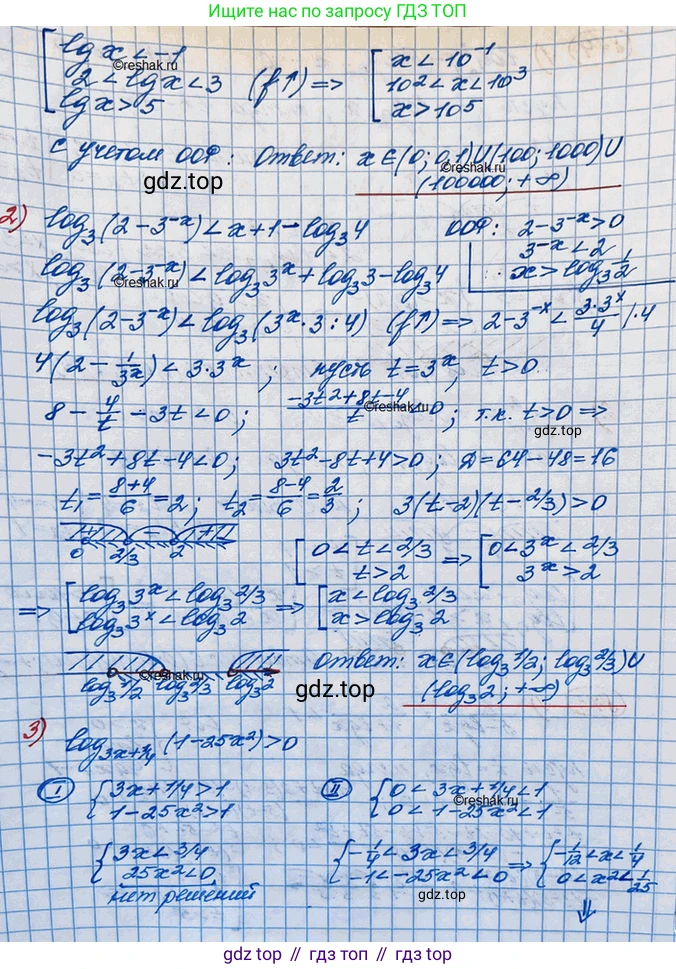 Ищите нас по запросу ГДЗ ТОП
[ lg x < -1
2 < lg x < 3 (f↑) => [ x < 10⁻¹
10² < x < 10³
lg x > 5 x > 10⁵
©reshak.ru
с учетом ООФ: Ответ: x ∈ (0; 0,1) U (100; 1000) U
(100000; +∞)
©reshak.ru
gdz.top
2) log₃(2 - 3⁻ˣ) < x + 1 - log₃4 ООФ: 2 - 3⁻ˣ > 0
3⁻ˣ < 2
x > log₃ 1/2
log₃(2 - 3⁻ˣ) < log₃3ˣ + log₃3 - log₃4
©reshak.ru
log₃(2 - 3⁻ˣ) < log₃(3ˣ · 3 : 4) (f↑) => 2 - 3⁻ˣ < 3·3ˣ/4 | · 4
4(2 - 1/3ˣ) < 3 · 3ˣ; пусть t = 3ˣ, t > 0
8 - 4/t - 3t < 0; (-3t² + 8t - 4)/t < 0; т.к. t > 0 =>
©reshak.ru
gdz.top
-3t² + 8t - 4 < 0; 3t² - 8t + 4 > 0; Д = 64 - 48 = 16
t₁ = (8+4)/6 = 2; t₂ = (8-4)/6 = 2/3; 3(t - 2)(t - 2/3) > 0
+ - +
0 2/3 2
[ 0 < t < 2/3
t > 2 => [ 0 < 3ˣ < 2/3
3ˣ > 2
=> [ log₃3ˣ < log₃ 2/3
log₃3ˣ < log₃ 2 => [ x < log₃ 2/3
x > log₃ 2
log₃ 1/2 log₃ 2/3 log₃ 2
Ответ: x ∈ (log₃ 1/2; log₃ 2/3) U
(log₃ 2; +∞)
gdz.top
3) log₃ₓ₊₁/₄ (1 - 25x²) > 0
I { 3x + 1/4 > 1
1 - 25x² > 1
II { 0 < 3x + 1/4 < 1
0 < 1 - 25x² < 1
©reshak.ru
{ 3x < 3/4
25x² < 0
нет решений
{ -1/4 < 3x < 3/4
-1 < -25x² < 0 => { -1/12 < x < 1/4
0 < x² < 1/25
⇓
gdz.top // гдз.топ // gdz.top // гдз.топ